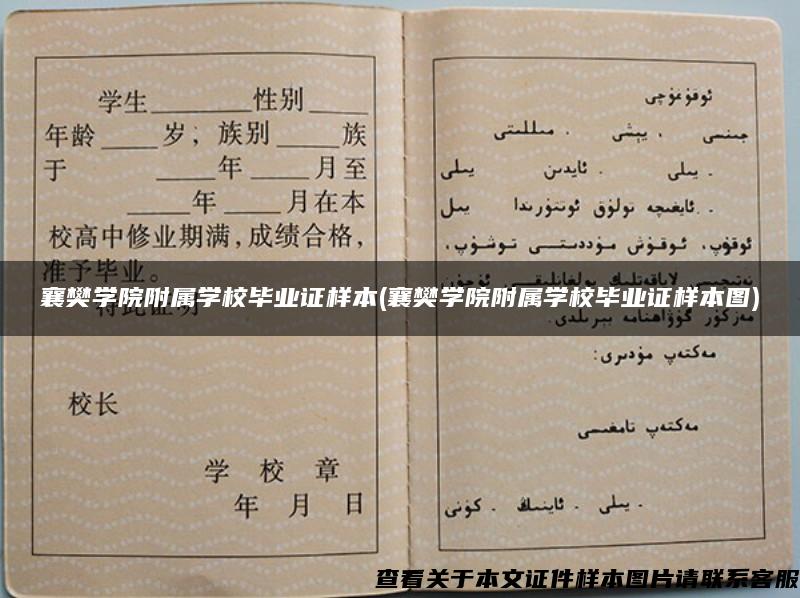 学生________性别____
年龄____岁；族别____族
于 ____年____月至
____年____月在本
校高中修业期满，成绩合格，
准予毕业。
特此证明
校长
学 校 章
年 月 日
ئوقۇغۇچى
جىنسى ، يېشى . مىللىتى
. يىلى . ئايدىن يىلى
. ئايغىچە تولۇق ئوتتۇرىدا يىل
ئوقۇپ، ئوقۇش مۇددىتى توشۇپ،
نەتىجىسى لاياقەتلىك بولغانلىقى ئۈچۈن
مەزكۇر گۇۋاھنامە بېرىلدى.
مەكتەپ مۇدىرى:
مەكتەپ تامغىسى
. يىلى . ئاينىڭ . كۈنى
襄樊学院附属学校毕业证样本(襄樊学院附属学校毕业证样本图)
查看关于本文证件样本图片请联系客服